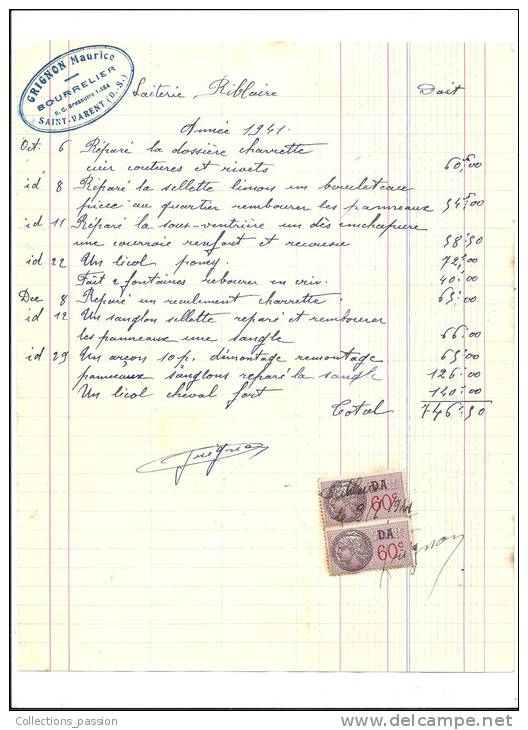 GRIGNON Maurice
BOURRELIER
R. C. Bressuire 1.584
SAINT-VARENT (D.-S.)
Laiterie Riblaire Doit
Année 1941.
Oct. 6 Réparé la dossière charrette
cuir coutures et rivets 60,00
id 8 Réparé la sellette limon un boucleteau
pièce au quartier rembourer les panneaux 54,00
id 11 Réparé la sous-ventrière un dès enchapure
une courroie renfort et recousue 58,50
id 22 Un licol poney 72,00
Fait 2 fontaines rebourer en crin 40,00
Dec 8 Reparé un reculement charrette 65,00
id 12 Un sanglon sellette reparé et rembourer
les panneaux une sangle 66,00
id 29 Un arçon 10p. démontage remontage 65,00
panneaux sanglons reparé la sangle 126,00
Un licol cheval fort 140,00
Total 746,50
Grignon
DA
60c
1941
DA
60c
Grignon
Collections_passion
delcampe.net